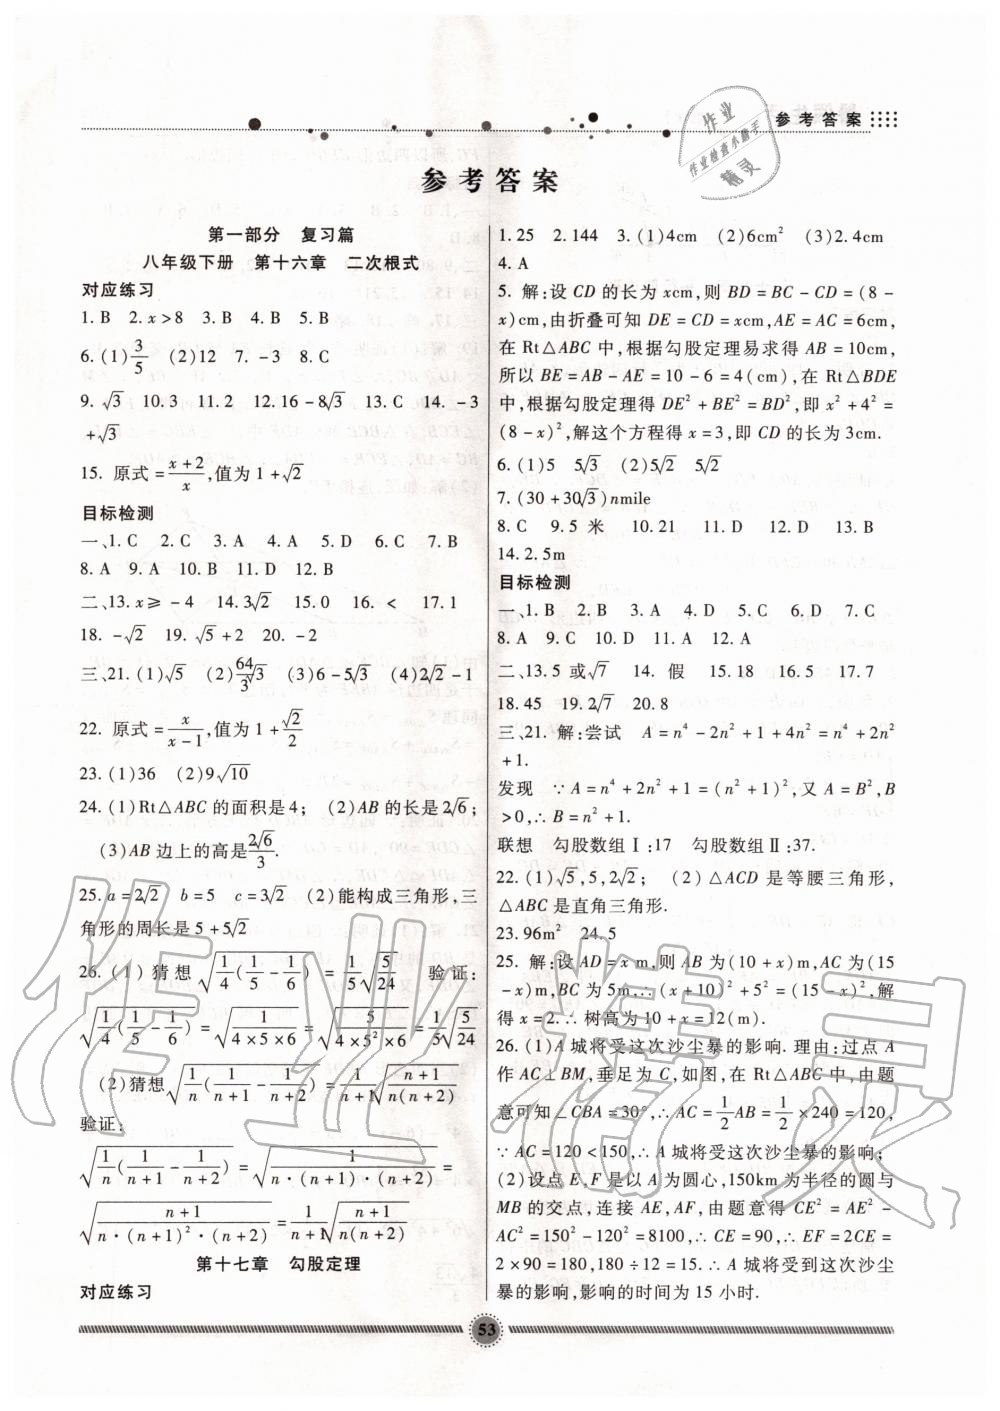 参考答案
作业
作业检查小助手
精灵
参考答案
第一部分 复习篇
八年级下册 第十六章 二次根式
对应练习
1. B 2. x>8 3. B 4. B 5. B
6. (1)3/5 (2)12 7. -3 8. C
9. √3 10. 3 11. 2 12. 16-8√3 13. C 14. -3
+√3
15. 原式=(x+2)/x,值为1+√2
目标检测
一、1. C 2. C 3. A 4. A 5. D 6. C 7. B
8. A 9. A 10. B 11. D 12. B
二、13. x≥-4 14. 3√2 15. 0 16. < 17. 1
18. -√2 19. √5+2 20. -2
三、21. (1)√5 (2)64/3√3 (3)6-5√3 (4)2√2-1
22. 原式=x/(x-1),值为1+√2/2
23. (1)36 (2)9√10
24. (1)Rt△ABC的面积是4; (2)AB的长是2√6;
(3)AB边上的高是2√6/3.
25. a=2√2 b=5 c=3√2 (2)能构成三角形,三
角形的周长是5+5√2
26. (1)猜想√(1/4(1/5-1/6))=1/5√(5/24) 验证:
√(1/4(1/5-1/6))=√(1/(4×5×6))=√(5/(4×5²×6))=1/5√(5/24)
(2)猜想√(1/n(1/(n+1)-1/(n+2)))=1/(n+1)√((n+1)/(n(n+2)))
验证:
√(1/n(1/(n+1)-1/(n+2)))=√(1/(n·(n+1)·(n+2)))=
√((n+1)/(n·(n+1)²·(n+2)))=1/(n+1)√((n+1)/(n(n+2)))
第十七章 勾股定理
对应练习
1. 25 2. 144 3. (1)4cm (2)6cm² (3)2.4cm
4. A
5. 解:设CD的长为xcm,则BD=BC-CD=(8-
x)cm,由折叠可知DE=CD=xcm,AE=AC=6cm,
在Rt△ABC中,根据勾股定理易求得AB=10cm,
所以BE=AB-AE=10-6=4(cm),在Rt△BDE
中,根据勾股定理得DE²+BE²=BD²,即x²+4²=
(8-x)²,解这个方程得x=3,即CD的长为3cm.
6. (1)5 5√3 (2)5√2 5√2
7. (30+30√3)nmile
8. C 9. 5米 10. 21 11. D 12. D 13. B
14. 2.5m
目标检测
一、1. B 2. B 3. A 4. D 5. C 6. D 7. C
8. A 9. C 10. D 11. A 12. A
二、13. 5或√7 14. 假 15. 18 16. 5 17. 7
18. 45 19. 2√7 20. 8
三、21. 解:尝试 A=n⁴-2n²+1+4n²=n⁴+2n²
+1.
发现 ∵A=n⁴+2n²+1=(n²+1)²,又A=B²,B
>0,∴B=n²+1.
联想 勾股数组Ⅰ:17 勾股数组Ⅱ:37.
22. (1)√5,5,2√5; (2)△ACD是等腰三角形,
△ABC是直角三角形.
23. 96m² 24. 5
25. 解:设AD=x m,则AB为(10+x)m,AC为(15
-x)m,BC为5m,∴(x+10)²+5²=(15-x)²,解
得x=2.∴树高为10+x=12(m).
26. (1)A城将受这次沙尘暴的影响. 理由:过点A
作AC⊥BM,垂足为C,如图,在Rt△ABC中,由题
意可知∠CBA=30°,∴AC=1/2AB=1/2×240=120,
∵AC=120<150,∴A城将受这次沙尘暴的影响;
(2)设点E,F是以A为圆心,150km为半径的圆与
MB的交点,连接AE,AF,由题意得CE²=AE²-
AC²=150²-120²=8100,∴CE=90,∴EF=2CE
=2×90=180,180÷12=15.∴A城将受到这次沙尘
暴的影响,影响的时间为15小时.
53
作业精灵